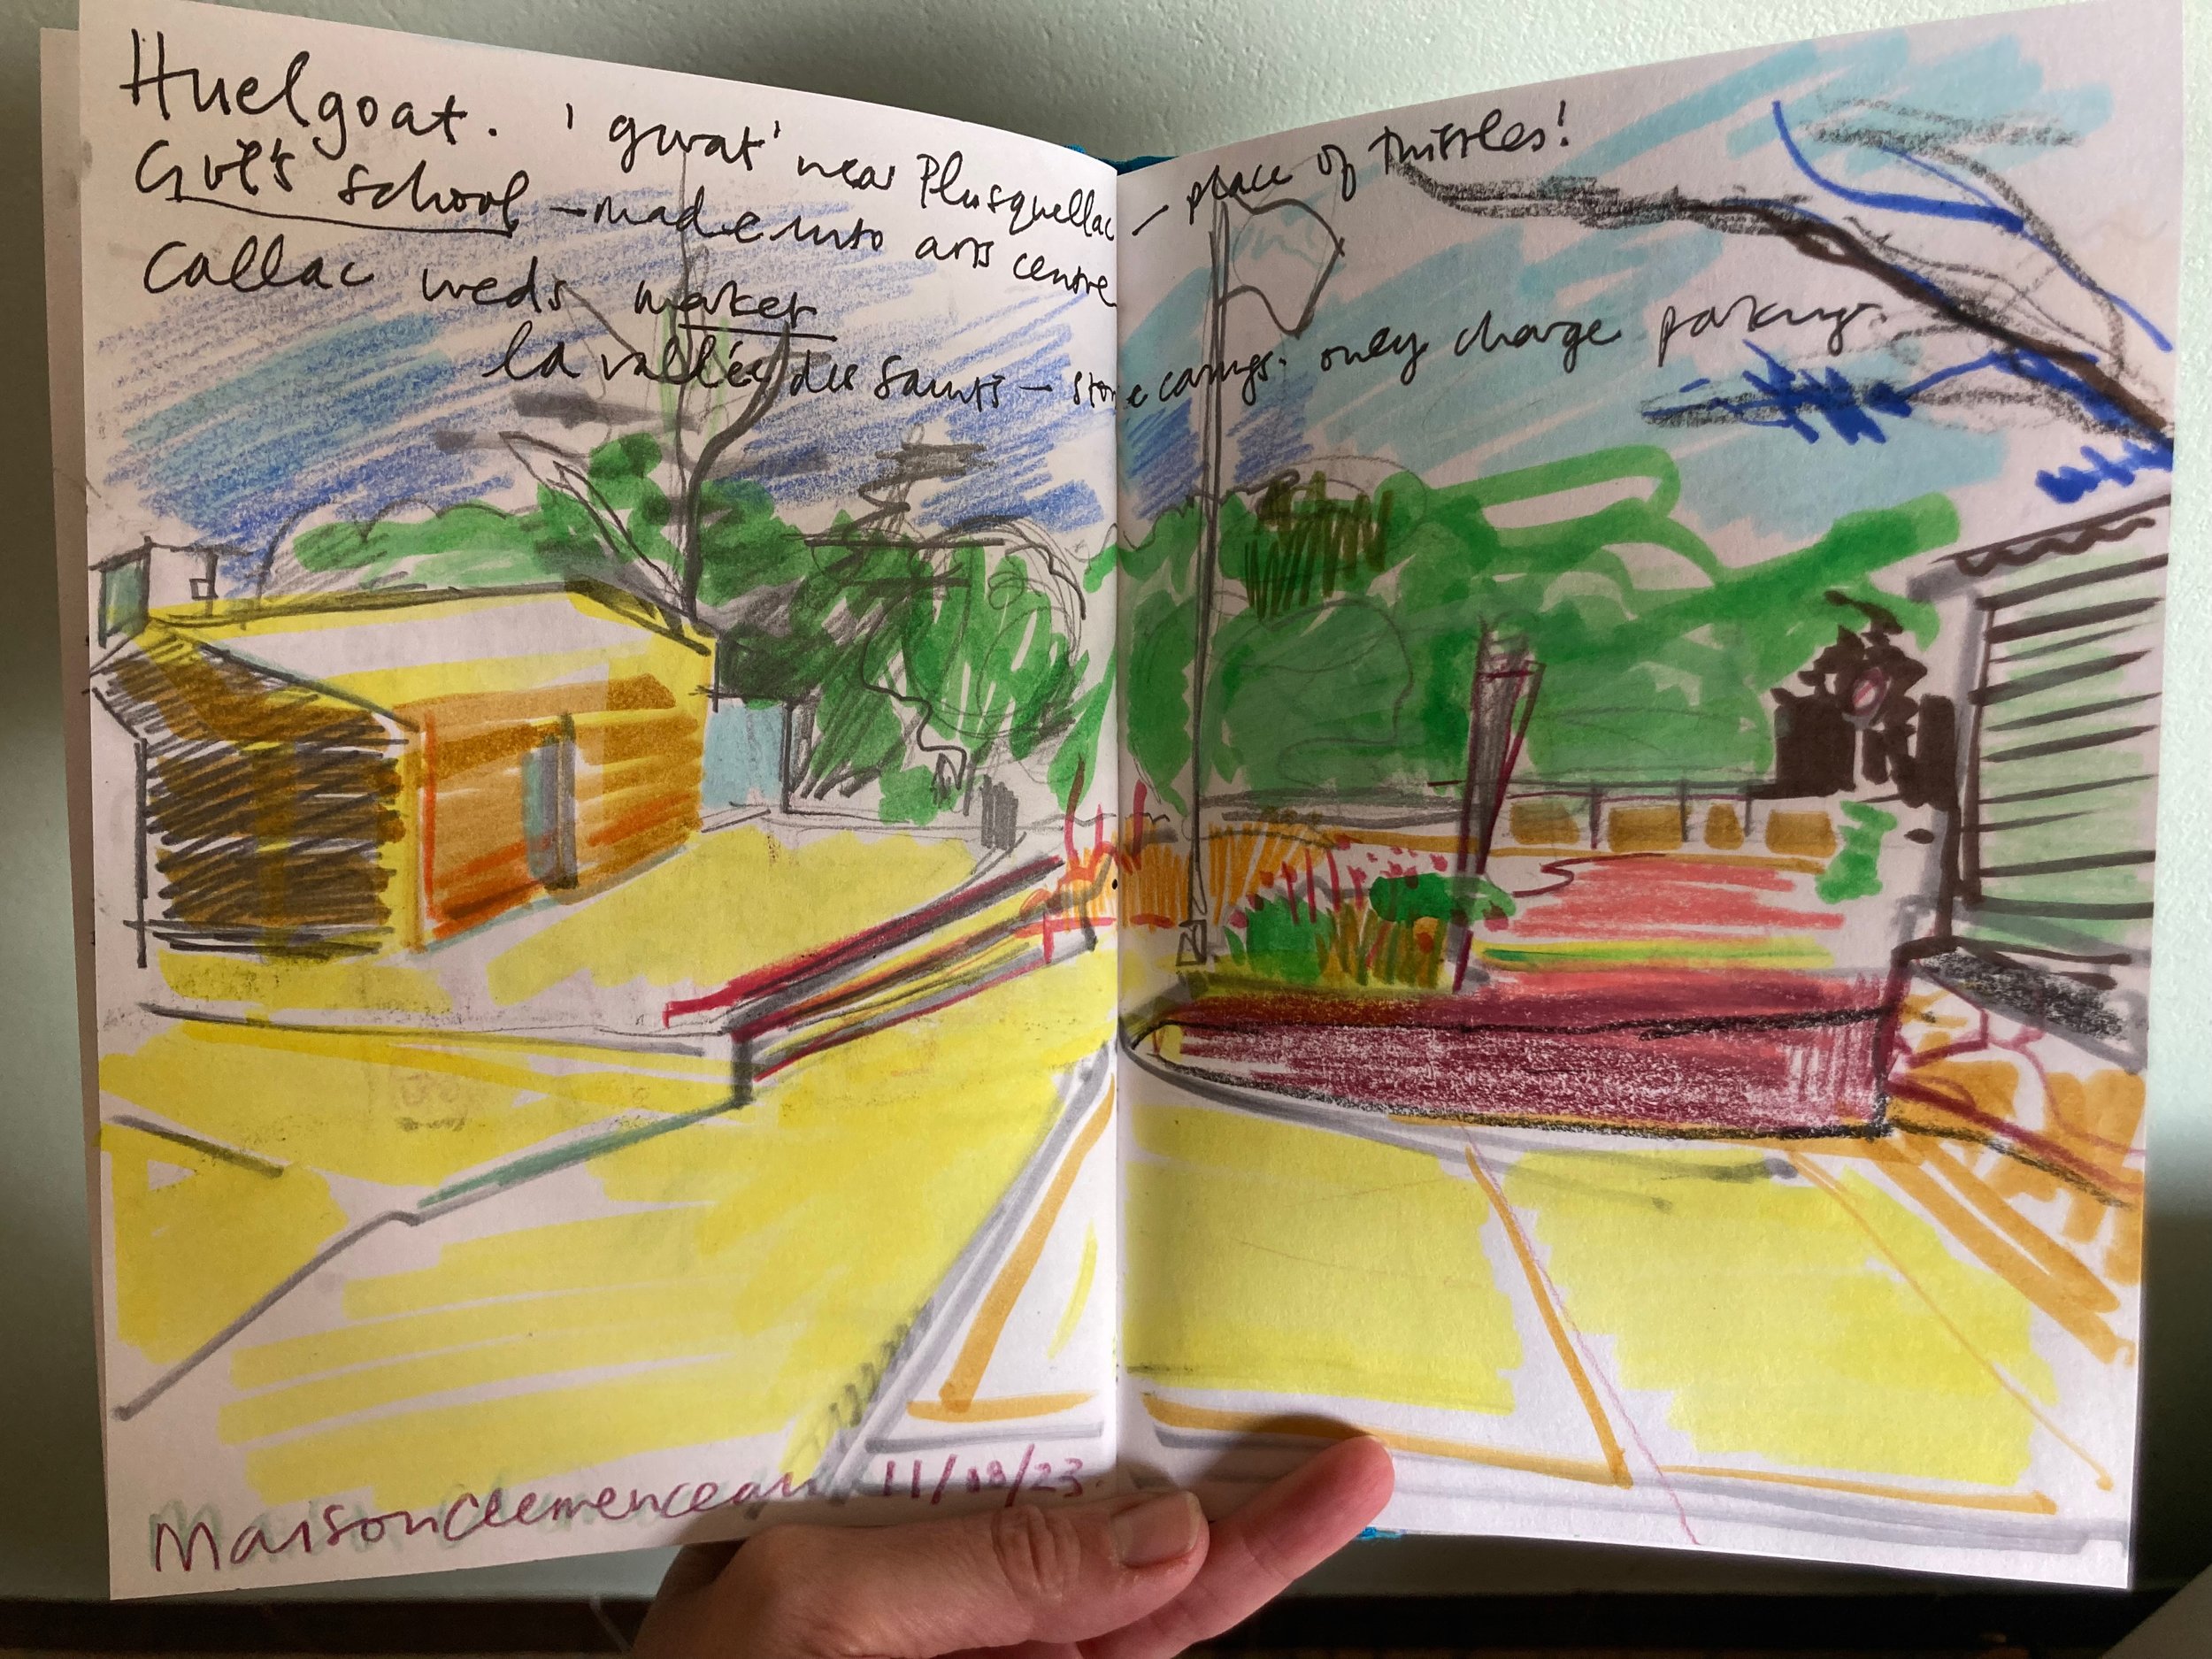 Huelgoat. 'gwat' near Plusquellac – place of thistles!
Girl's school – made into arts centre
Callac weds market
la vallée des Saints – stone carvings. only charge parking.
Maison Clemenceau 11/18/23.